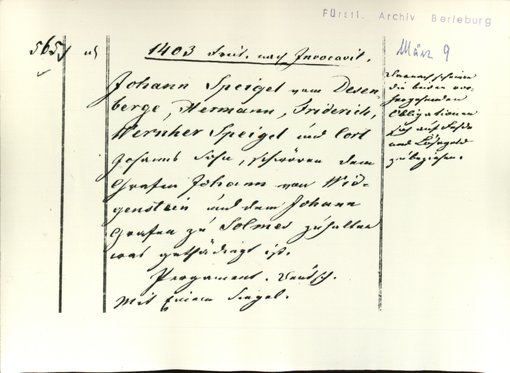 Fürstl. Archiv Berleburg
565
1403 Freit. nach Invocavit.
März 9
Johann Speigel vom Desen-
berge, Hermann, Friderich,
Wernher Speigel und Cort
Johanns Sohn, schwören dem
Grafen Johann von Wid-
genstein und dem Johann
Grafen zu Solmes zuhalten
was gethädingt ist.
Pergament. Deutsch.
Mit Einem Siegel.
die beiden vor-
hergehenden
Obligationen
sich auf Fehde
und Lösegeld
zu beziehen.